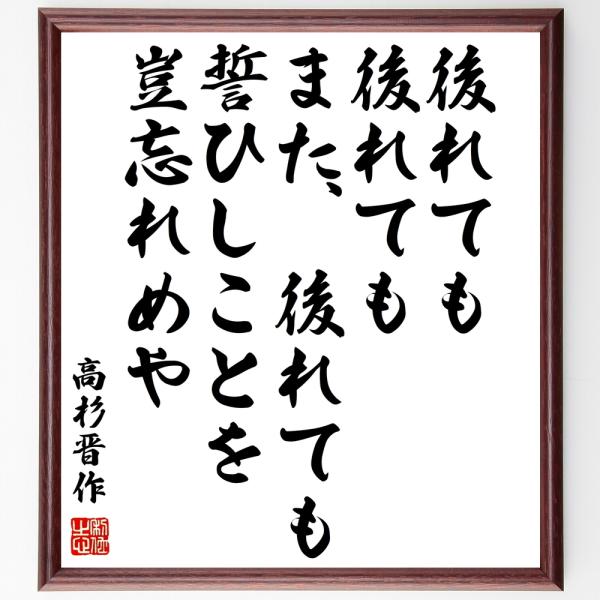 後れても
後れても
また、　後れても
誓ひしことを
豈忘れめや
高杉晋作